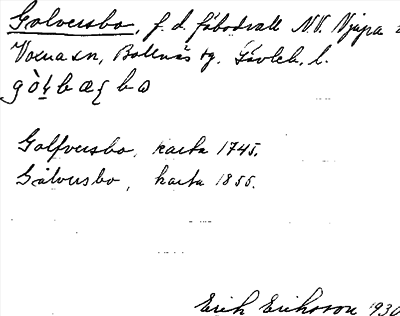 Golversbo, f. d. fäbodvall N.V. Njupa
Voxna sn, Bollnäs tg. Gävleb. l.
Golfversbo, karta 1745.
Gålversbo, karta 1855.
Erik Eriksson 1930